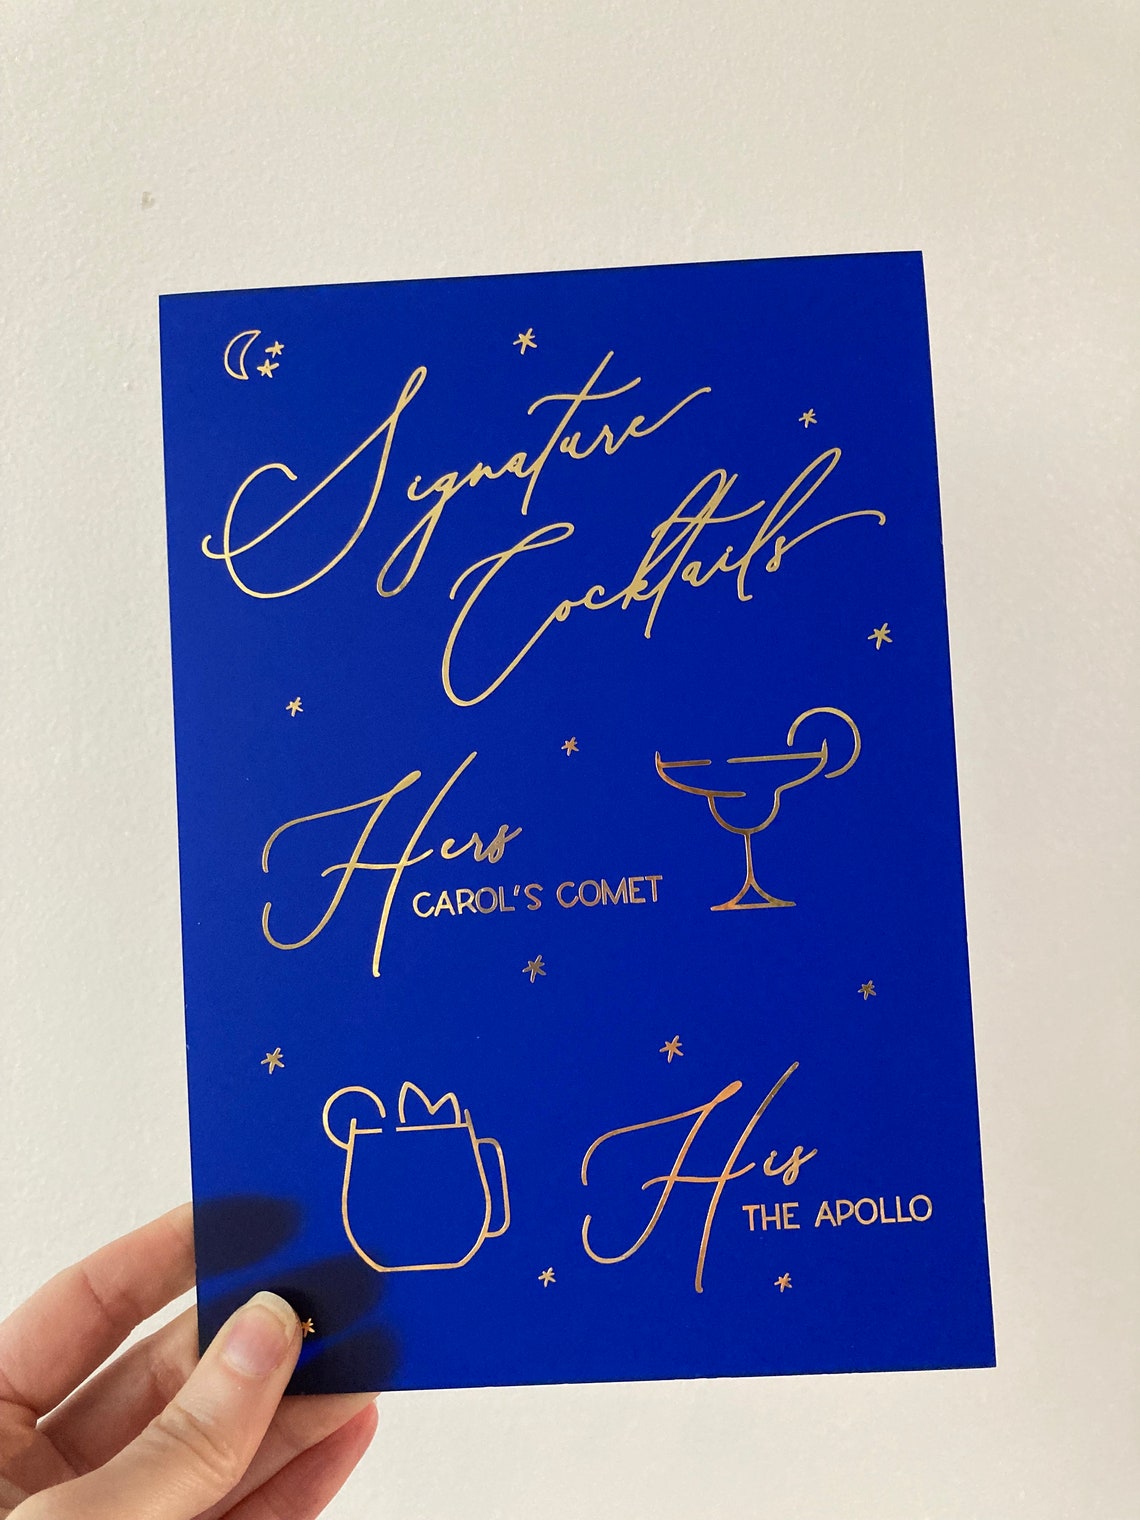 Signature
Cocktails
Hers
CAROL'S COMET
His
THE APOLLO